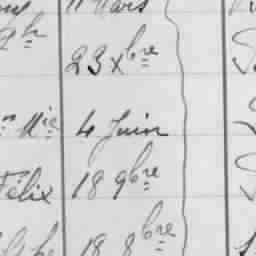 11 Mars
gh
23 Xbre
n Mie 4 Juin
Félix 18 9bre
18 8bre